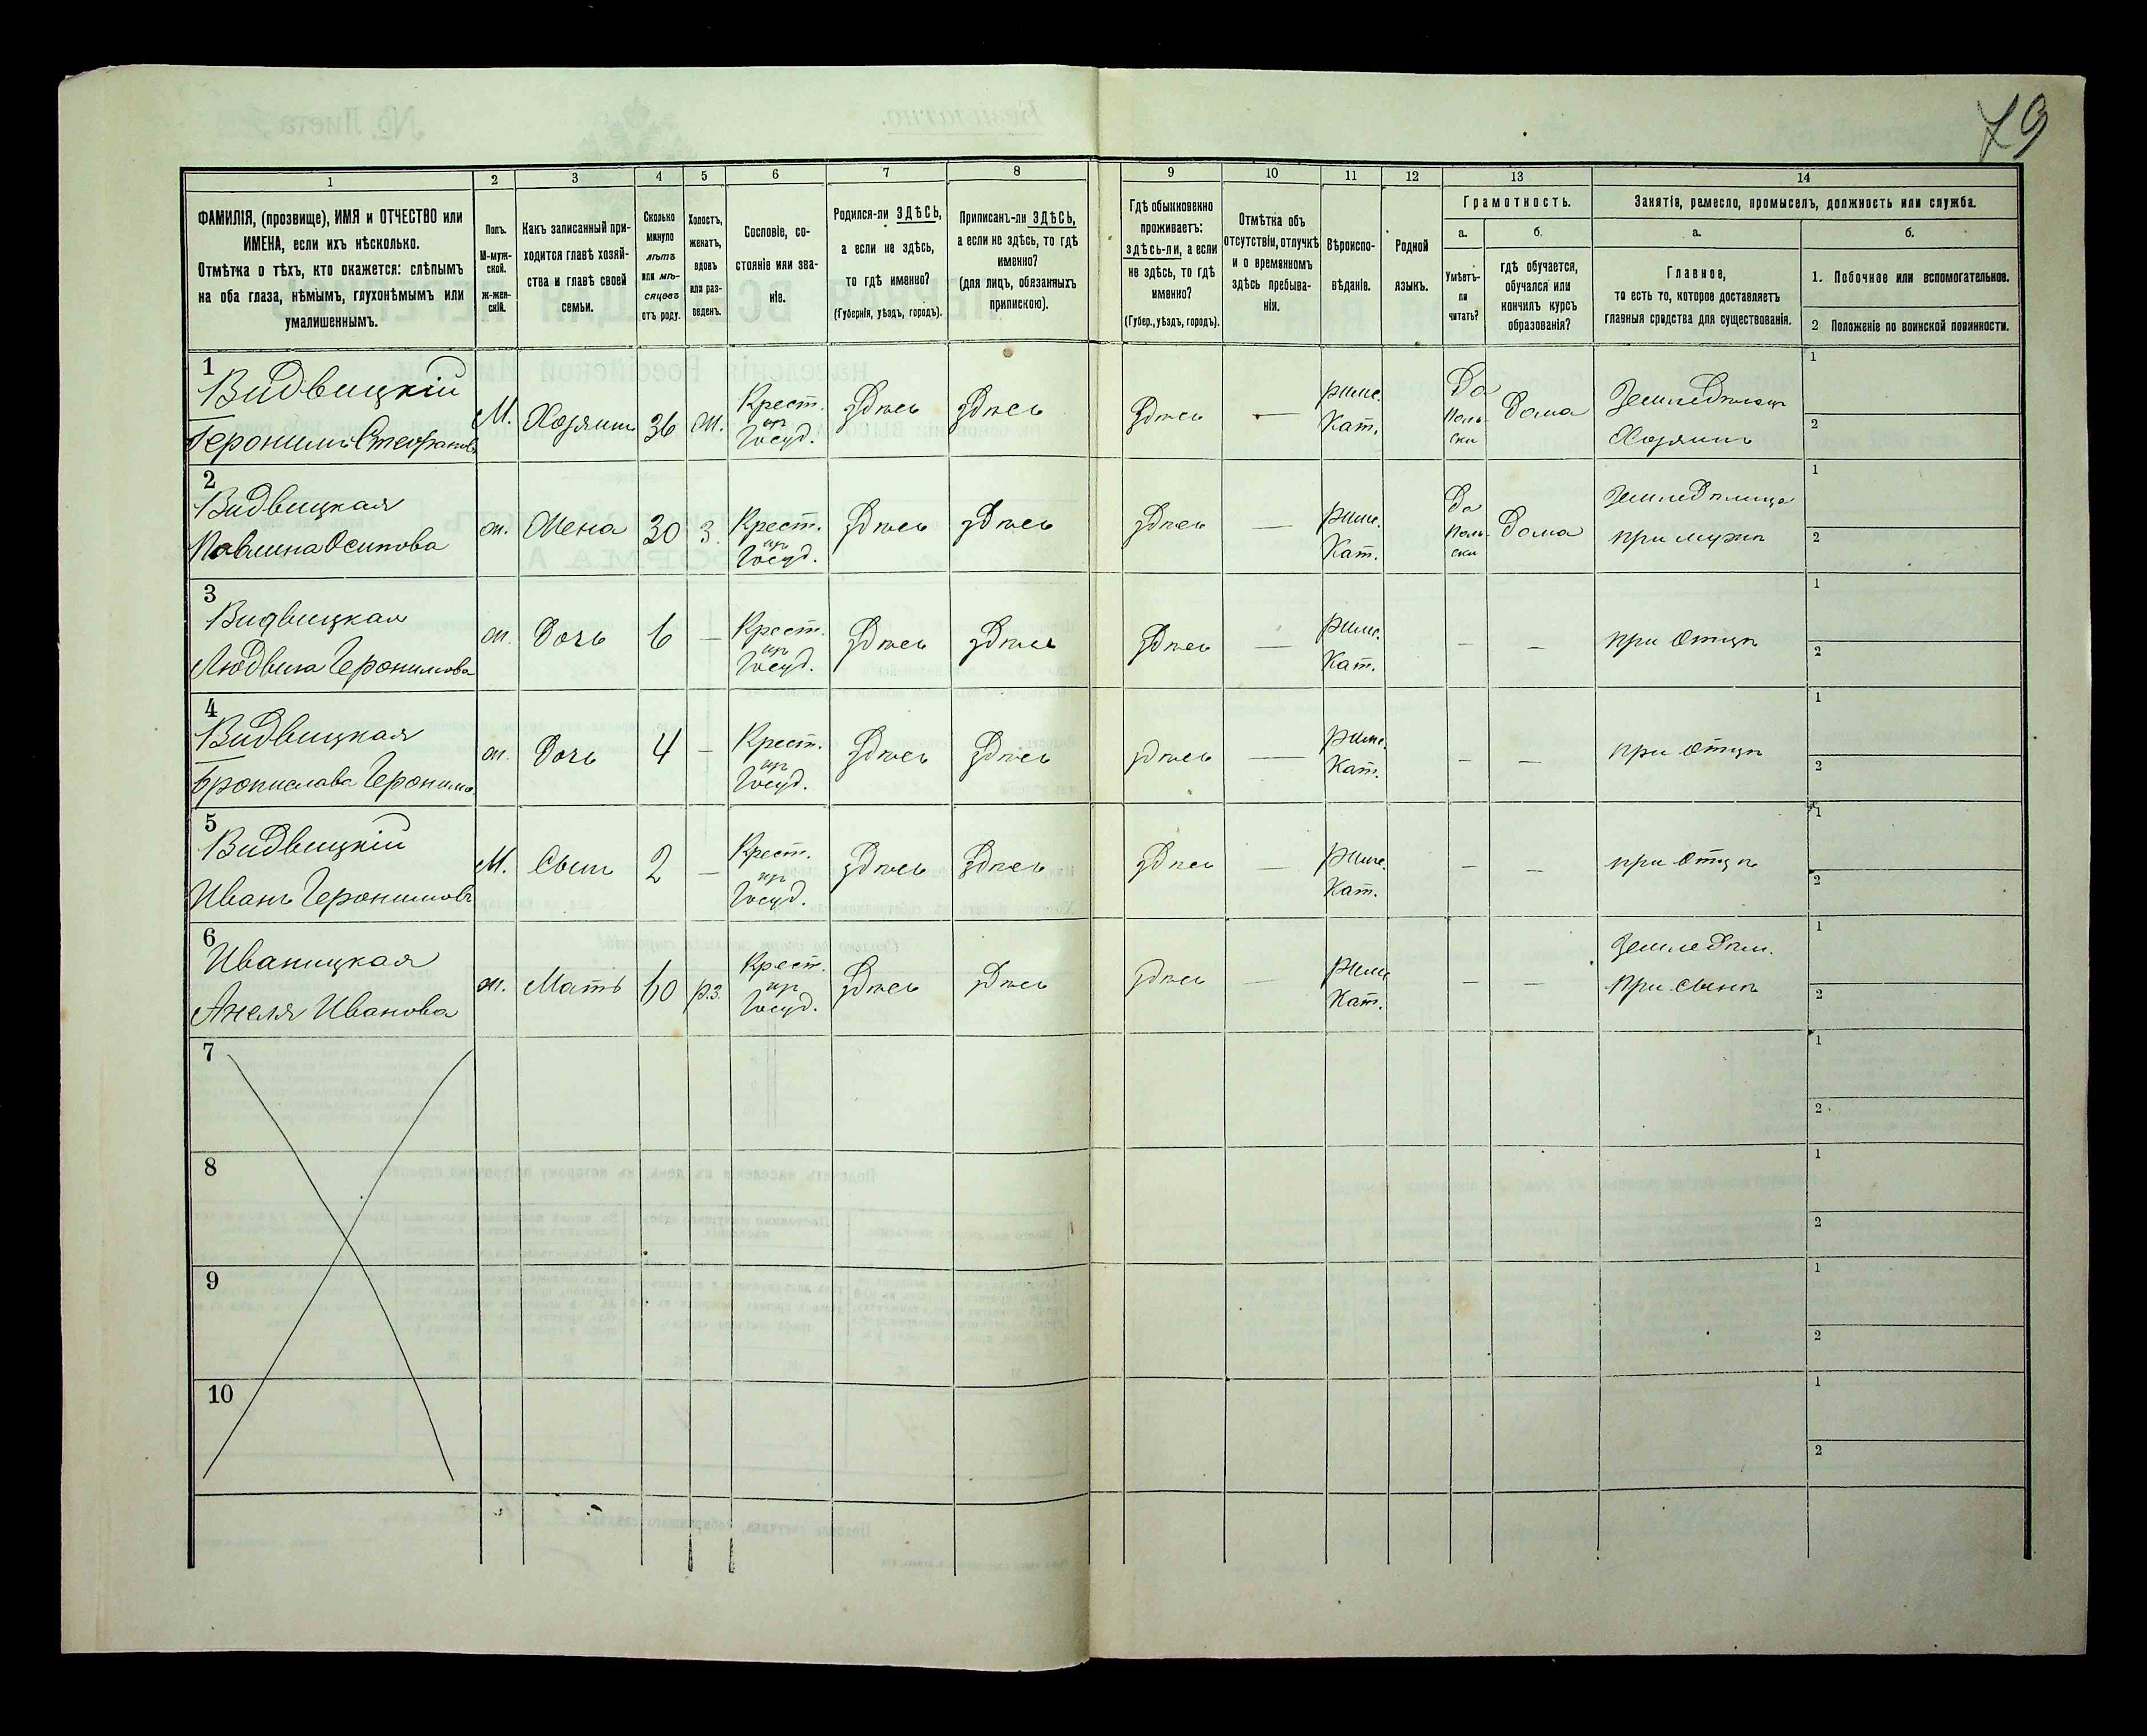 79
1 2 3 4 5 6 7 8 9 10 11 12 13 14
ФАМИЛІЯ, (прозвище), ИМЯ и ОТЧЕСТВО или
ИМЕНА, если ихъ нѣсколько.
Отмѣтка о тѣхъ, кто окажется: слѣпымъ
на оба глаза, нѣмымъ, глухонѣмымъ или
умалишеннымъ.
Полъ.
М-муж-
ской.
Ж-жен-
скій.
Какъ записанный при-
ходится главѣ хозяй-
ства и главѣ своей
семьи.
Сколько
минуло
лѣтъ
или мѣ-
сяцевъ
отъ роду.
Холостъ,
женатъ,
вдовъ
или раз-
веденъ.
Сословіе, со-
стояніе или зва-
ніе.
Родился-ли ЗДѢСЬ,
а если не здѣсь,
то гдѣ именно?
(Губернія, уѣздъ, городъ).
Приписанъ-ли ЗДѢСЬ,
а если не здѣсь, то гдѣ
именно?
(для лицъ, обязанныхъ
припискою).
Гдѣ обыкновенно
проживаетъ:
здѣсь-ли, а если
не здѣсь, то гдѣ
именно?
(Губер., уѣздъ, городъ).
Отмѣтка объ
отсутствіи, отлучкѣ
и о временномъ
здѣсь пребыва-
ніи.
Вѣроиспо-
вѣданіе.
Родной
языкъ.
Грамотность.
а.
Умѣетъ-
ли
читать?
б.
гдѣ обучается,
обучался или
кончилъ курсъ
образованія?
Занятіе, ремесло, промыселъ, должность или служба.
а.
Главное,
то есть то, которое доставляетъ
главныя средства для существованія.
б.
1. Побочное или вспомогательное.
2 Положеніе по воинской повинности.
1
Видвицкій
Геронимъ Стефановъ
М. Хозяинъ 36 ж. Крест. изъ Госуд. Здѣсь Здѣсь Здѣсь — Римс. Кат. Да Поль-ски Дома Земледѣлецъ Хозяинъ
1
2
2
Видвицкая
Павлина Осипова
ж. Жена 30 з. Крест. изъ Госуд. Здѣсь Здѣсь Здѣсь — Римс. Кат. Да Поль-ски Дома Земледѣлица при мужѣ
1
2
3
Видвицкая
Людвика Геронимова
ж. Дочь 6 — Крест. изъ Госуд. Здѣсь Здѣсь Здѣсь — Римс. Кат. — — при отцѣ
1
2
4
Видвицкая
Брониславa Геронимо.
ж. Дочь 4 — Крест. изъ Госуд. Здѣсь Здѣсь Здѣсь — Римс. Кат. — — при отцѣ
1
2
5
Видвицкій
Иванъ Геронимовъ
М. Сынъ 2 — Крест. изъ Госуд. Здѣсь Здѣсь Здѣсь — Римс. Кат. — — при отцѣ
1
2
6
Иваницкая
Анеля Иванова
ж. Мать 60 рз. Крест. изъ Госуд. Здѣсь Здѣсь Здѣсь — Римс Кат. — — Земледѣл. при сынѣ
1
2
7
1
2
8
1
2
9
1
2
10
1
2